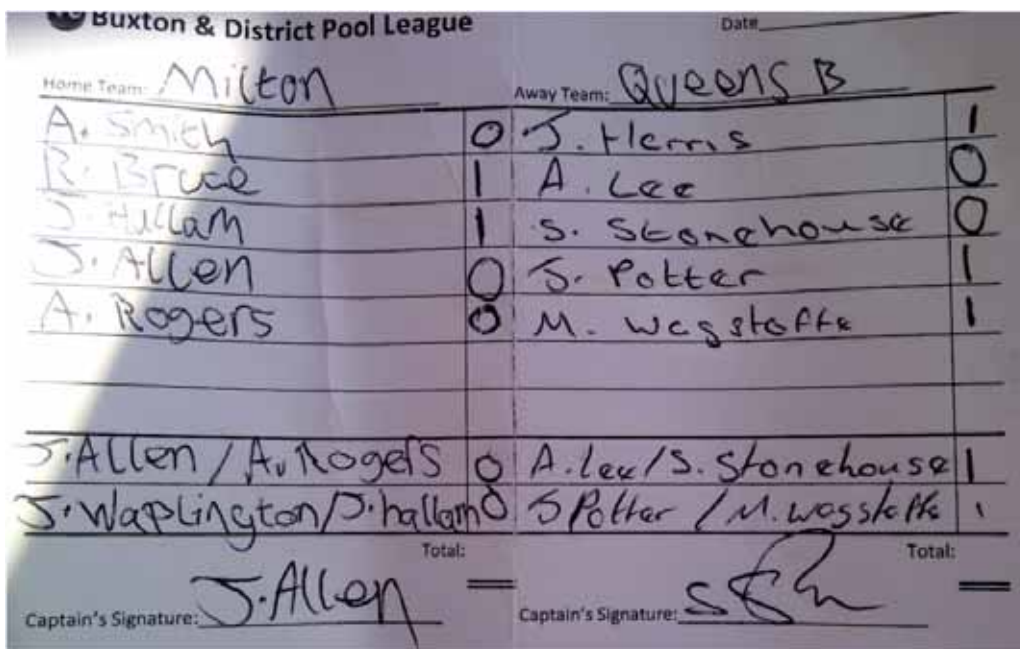 Buxton & District Pool League Date
Home Team: Milton Away Team: Queens B
A. Smith 0 J. Herris 1
R. Bruce 1 A. Lee 0
J. Hallam 1 S. Stonehouse 0
J. Allen 0 J. Potter 1
A. Rogers 0 M. Wagstaffe 1
J. Allen / A. Rogers 0 A. Lee / S. Stonehouse 1
J. Waplington / J. hallam 0 J Potter / M. Wagstaffe 1
Total: Total:
Captain's Signature: J. Allen Captain's Signature: